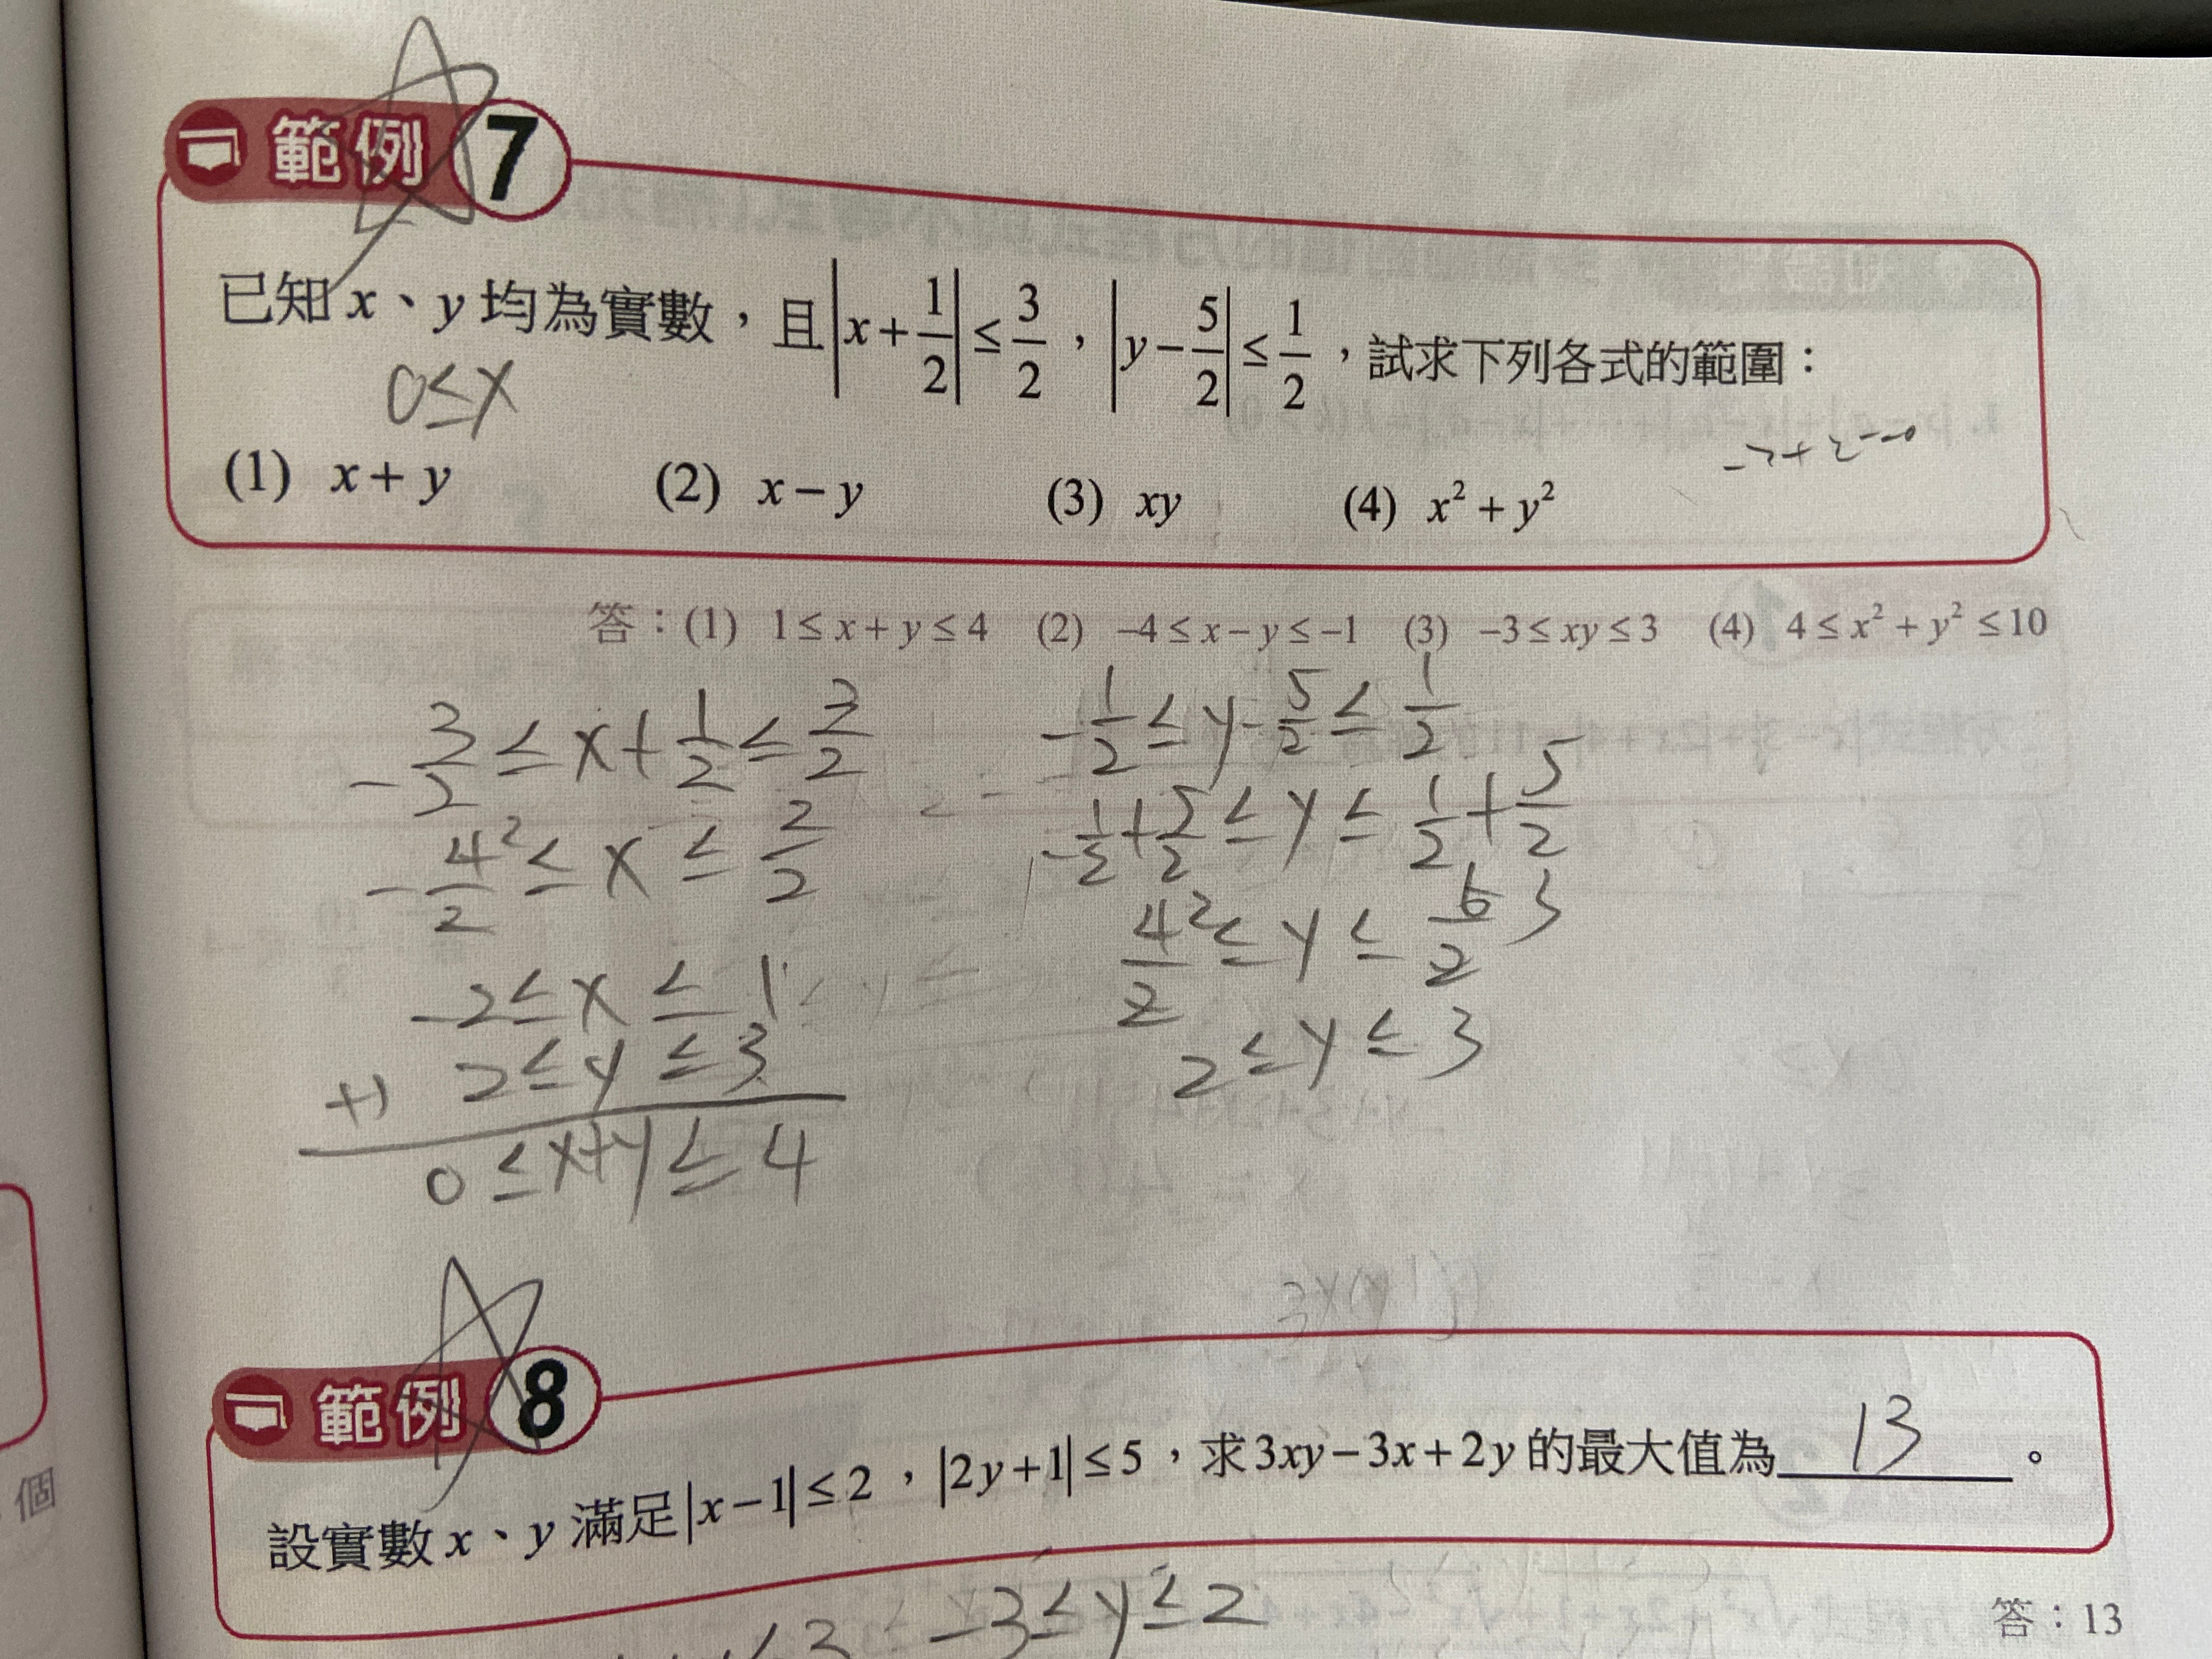 範例 7
已知 x、y 均為實數，且|x+1/2|≤3/2，|y−5/2|≤1/2，試求下列各式的範圍：
0≤x
(1) x+y (2) x−y (3) xy (4) x²+y²
答：(1) 1≤x+y≤4 (2) −4≤x−y≤−1 (3) −3≤xy≤3 (4) 4≤x²+y²≤10
-3/2≤x+1/2≤3/2
-1/2≤y-5/2≤1/2
-1/2+5/2≤y≤1/2+5/2
-4/2 2≤x≤2/2
4/2 2≤y≤6/2 3
-2≤x≤1
2≤y≤3
2≤y≤3
+)
0≤x+y≤4
範例 8
設實數 x、y 滿足|x−1|≤2，|2y+1|≤5，求3xy−3x+2y的最大值為 13 。
-3≤y≤2
答：13
個